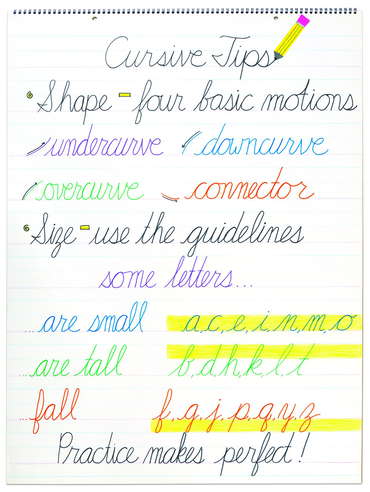 Cursive Tips
Shape - four basic motions
undercurve downcurve
overcurve connector
Size - use the guidelines
some letters...
...are small a, c, e, i, n, m, o
...are tall b, d, h, k, l, t
...fall f, g, j, p, q, y, z
Practice makes perfect!